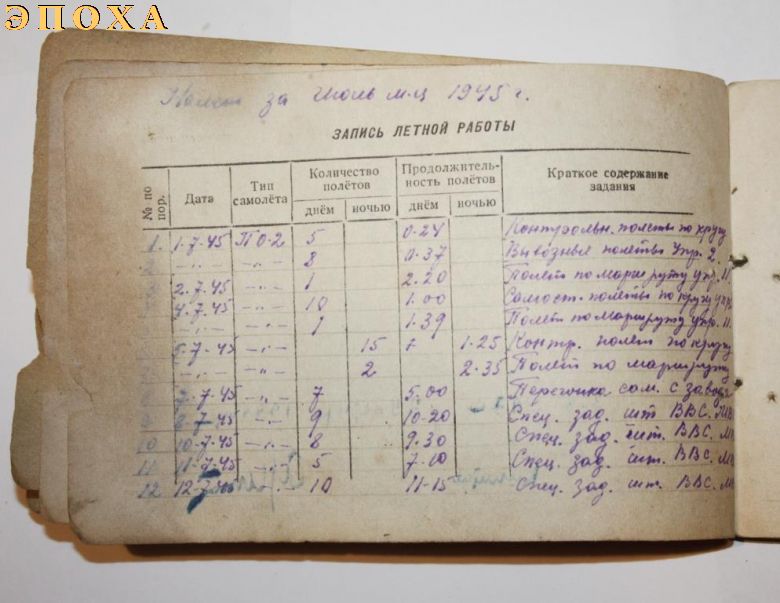 ЭПОХА
Налёт за Июль м-ц 1945 г.
ЗАПИСЬ ЛЕТНОЙ РАБОТЫ
№ по пор. Дата Тип самолёта Количество полётов Продолжительность полётов Краткое содержание задания
днём ночью днём ночью
1. 1.7.45 ПО-2 5 0.24 Контрольн. полеты по кругу
-"- -"- 8 0.37 Вывозные полеты Упр. 2
2.7.45 -"- 1 2.20 Полет по маршруту упр. 11
4.7.45 -"- 10 1.00 Самост. полеты по кругу упр
-"- -"- 1 1.39 Полет по маршруту упр. 11
5.7.45 -"- 15 1.25 Контр. полет по кругу
-"- -"- 2 2.35 Полет по маршруту
7.45 -"- 7 5.00 Перегонка сам. с завода
8.7.45 -"- 9 10.20 Спец. зад. шт. ВВС.
10 10.7.45 -"- 8 9.30 Спец. зад. шт. ВВС.
11 11.7.45 -"- 5 7.10 Спец. зад. шт. ВВС.
12 12.7.45 -"- 10 11-15 Спец. зад. шт. ВВС.